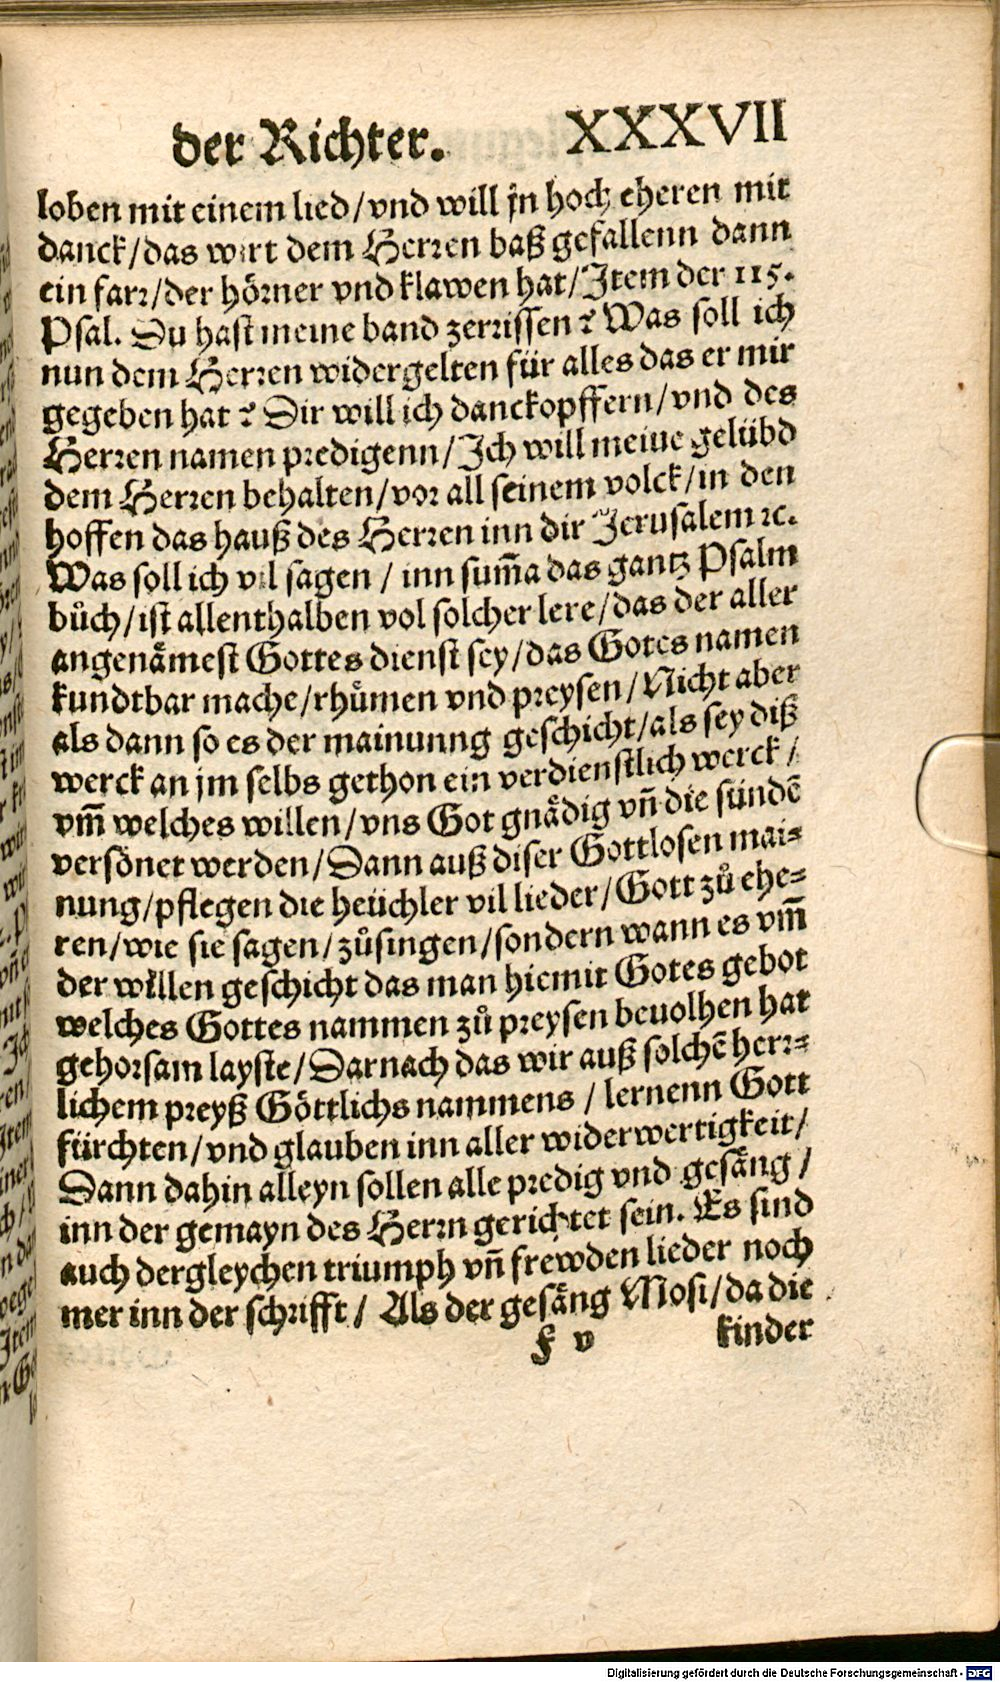 der Richter. XXXVII
loben mit einem lied/vnd will jn hoch eheren mit
danck/das wirt dem Herren baß gefallenn dann
ein farr/der hörner vnd klawen hat/Item der 115.
Psal. Du hast meine band zerrissen? Was soll ich
nun dem Herren widergelten für alles das er mir
gegeben hat? Dir will ich danckopffern/vnd des
Herren namen predigenn/Ich will meine gelübd
dem Herren behalten/vor all seinem volck/in den
hoffen das hauß des Herren inn dir Jerusalem ꝛc.
Was soll ich vil sagen / inn sum̃a das gantz Psalm
bůch/ist allenthalben vol solcher lere/das der aller
angenaͤmest Gottes dienst sey/das Gotes namen
kundtbar mache/rhuͤmen vnd preysen/Nicht aber
als dann so es der mainunng geschicht/als sey diß
werck an jm selbs gethon ein verdienstlich werck/
vm̃ welches willen/vns Got gnaͤdig vn̄ die sündẽ
versönet werden/Dann auß diser Gottlosen mai⸗
nung/pflegen die heüchler vil lieder/Gott zů ehe⸗
ren/wie sie sagen/zůsingen/sondern wann es vm̃
der willen geschicht das man hiemit Gotes gebot
welches Gottes nammen zů preysen beuolhen hat
gehorsam layste/Darnach das wir auß solchẽ herr⸗
lichem preyß Göttlichs nammens / lernenn Gott
fürchten/vnd glauben inn aller widerwertigkeit/
Dann dahin alleyn sollen alle predig vnd gesaͤng /
inn der gemayn des Herrn gerichtet sein. Es sind
auch dergleychen triumph vn̄ frewden lieder noch
mer inn der schrifft / Als der gesaͤng Mosi/da die
F v kinder
Digitalisierung gefördert durch die Deutsche Forschungsgemeinschaft - DFG